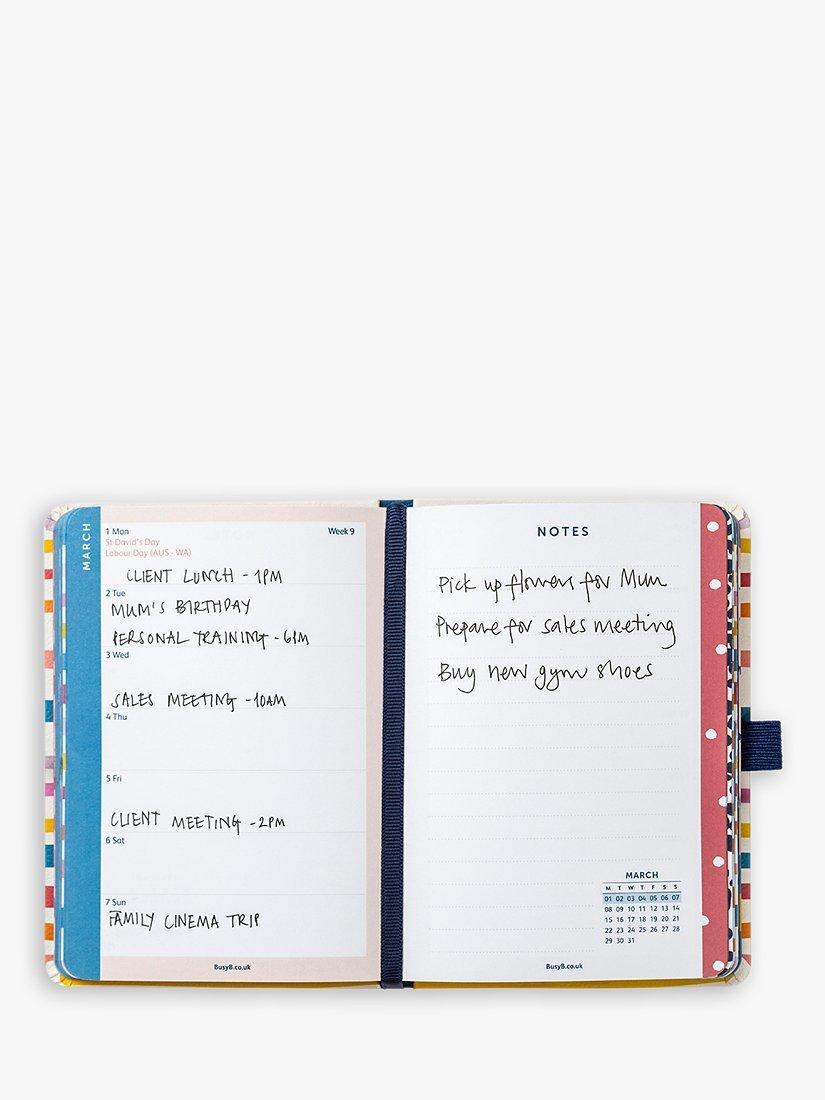 MARCH
1 Mon Week 9
St David's Day
Labour Day (AUS - WA)
CLIENT LUNCH - 1PM
2 Tue
MUM'S BIRTHDAY
PERSONAL TRAINING - 6PM
3 Wed
SALES MEETING - 10AM
4 Thu
5 Fri
CLIENT MEETING - 2PM
6 Sat
7 Sun
FAMILY CINEMA TRIP
BusyB.co.uk
NOTES
Pick up flowers for Mum
Prepare for sales meeting
Buy new gym shoes
MARCH
M T W T F S S
01 02 03 04 05 06 07
08 09 10 11 12 13 14
15 16 17 18 19 20 21
22 23 24 25 26 27 28
29 30 31
BusyB.co.uk